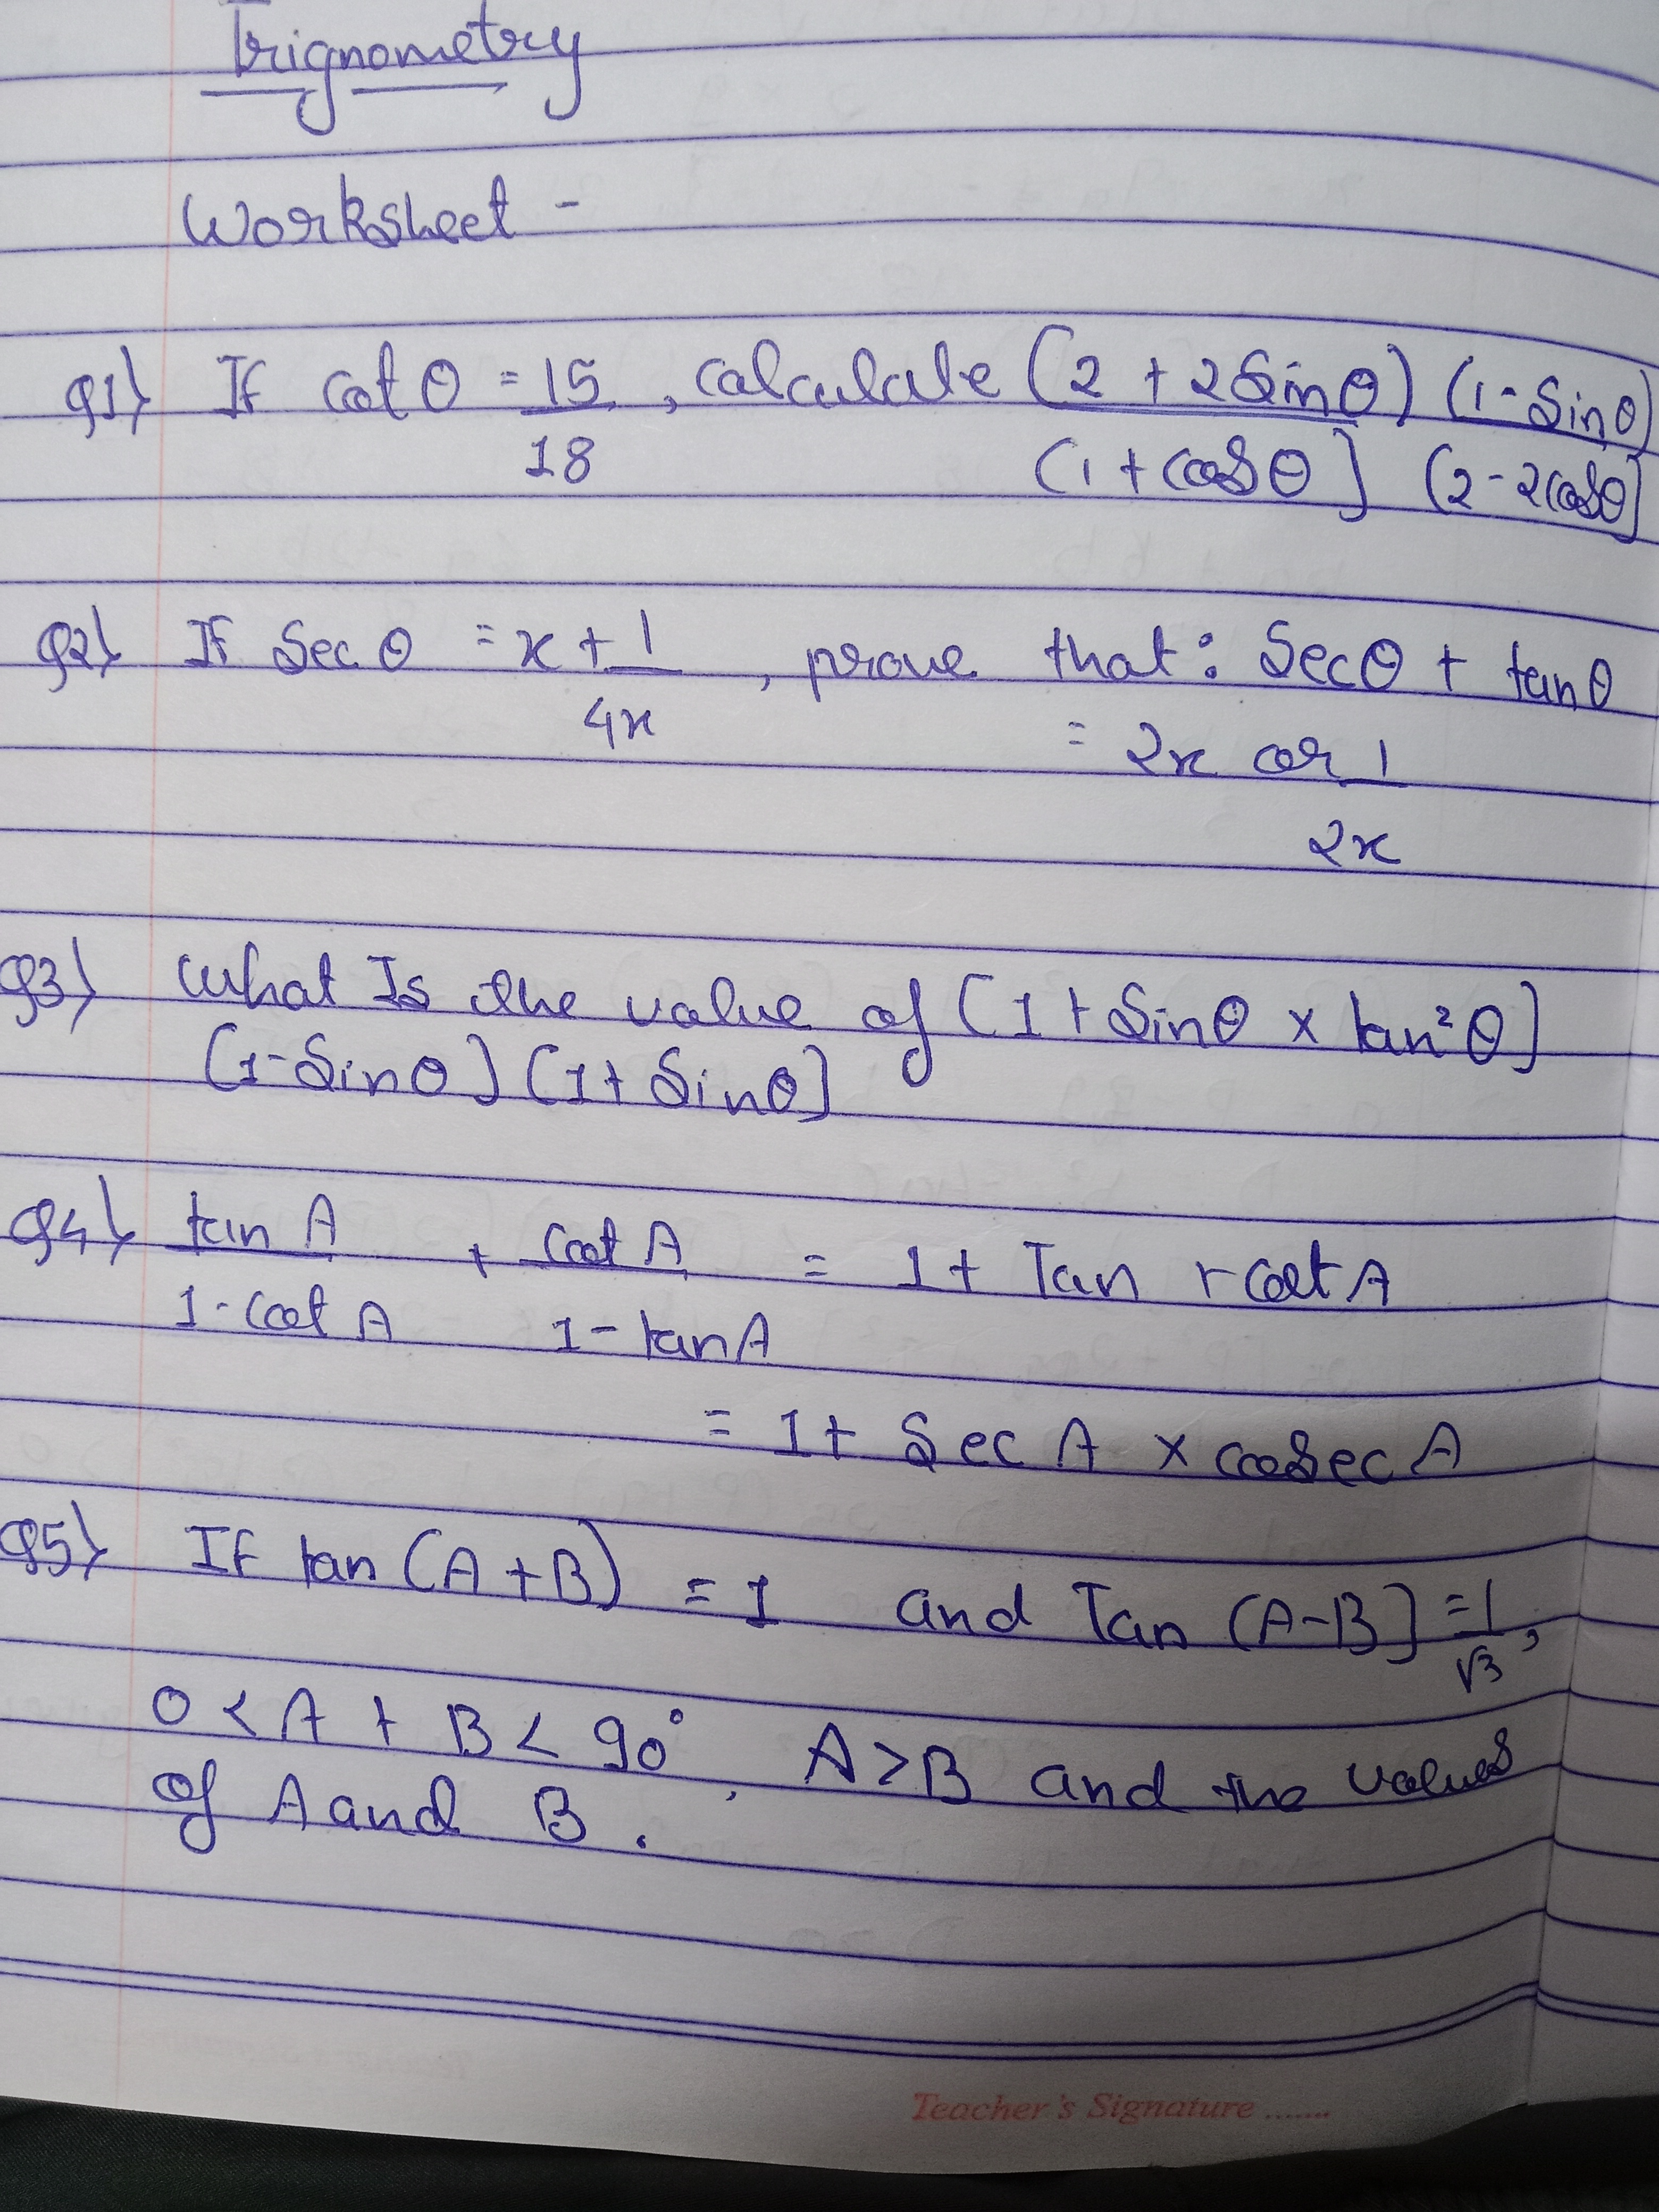 Trignometry
Worksheet -
Q1) If cot θ = 15/18, calculate (2 + 2Sinθ) (1-Sinθ)
(1 + cosθ) (2-2cosθ)
Q2) If Sec θ = x + 1/4x, prove that: Secθ + tanθ
= 2x or 1/2x
Q3) What Is the value of (1 + Sinθ x tan²θ)
(1-Sinθ) (1+ Sinθ)
Q4) tan A/1-cot A + cot A/1-tanA = 1+ Tan + cot A
= 1+ Sec A x cosec A
Q5) If tan (A+B) = 1 and Tan (A-B) = 1/√3,
0 < A + B < 90°, A>B and the values
of A and B.
Teacher's Signature .......